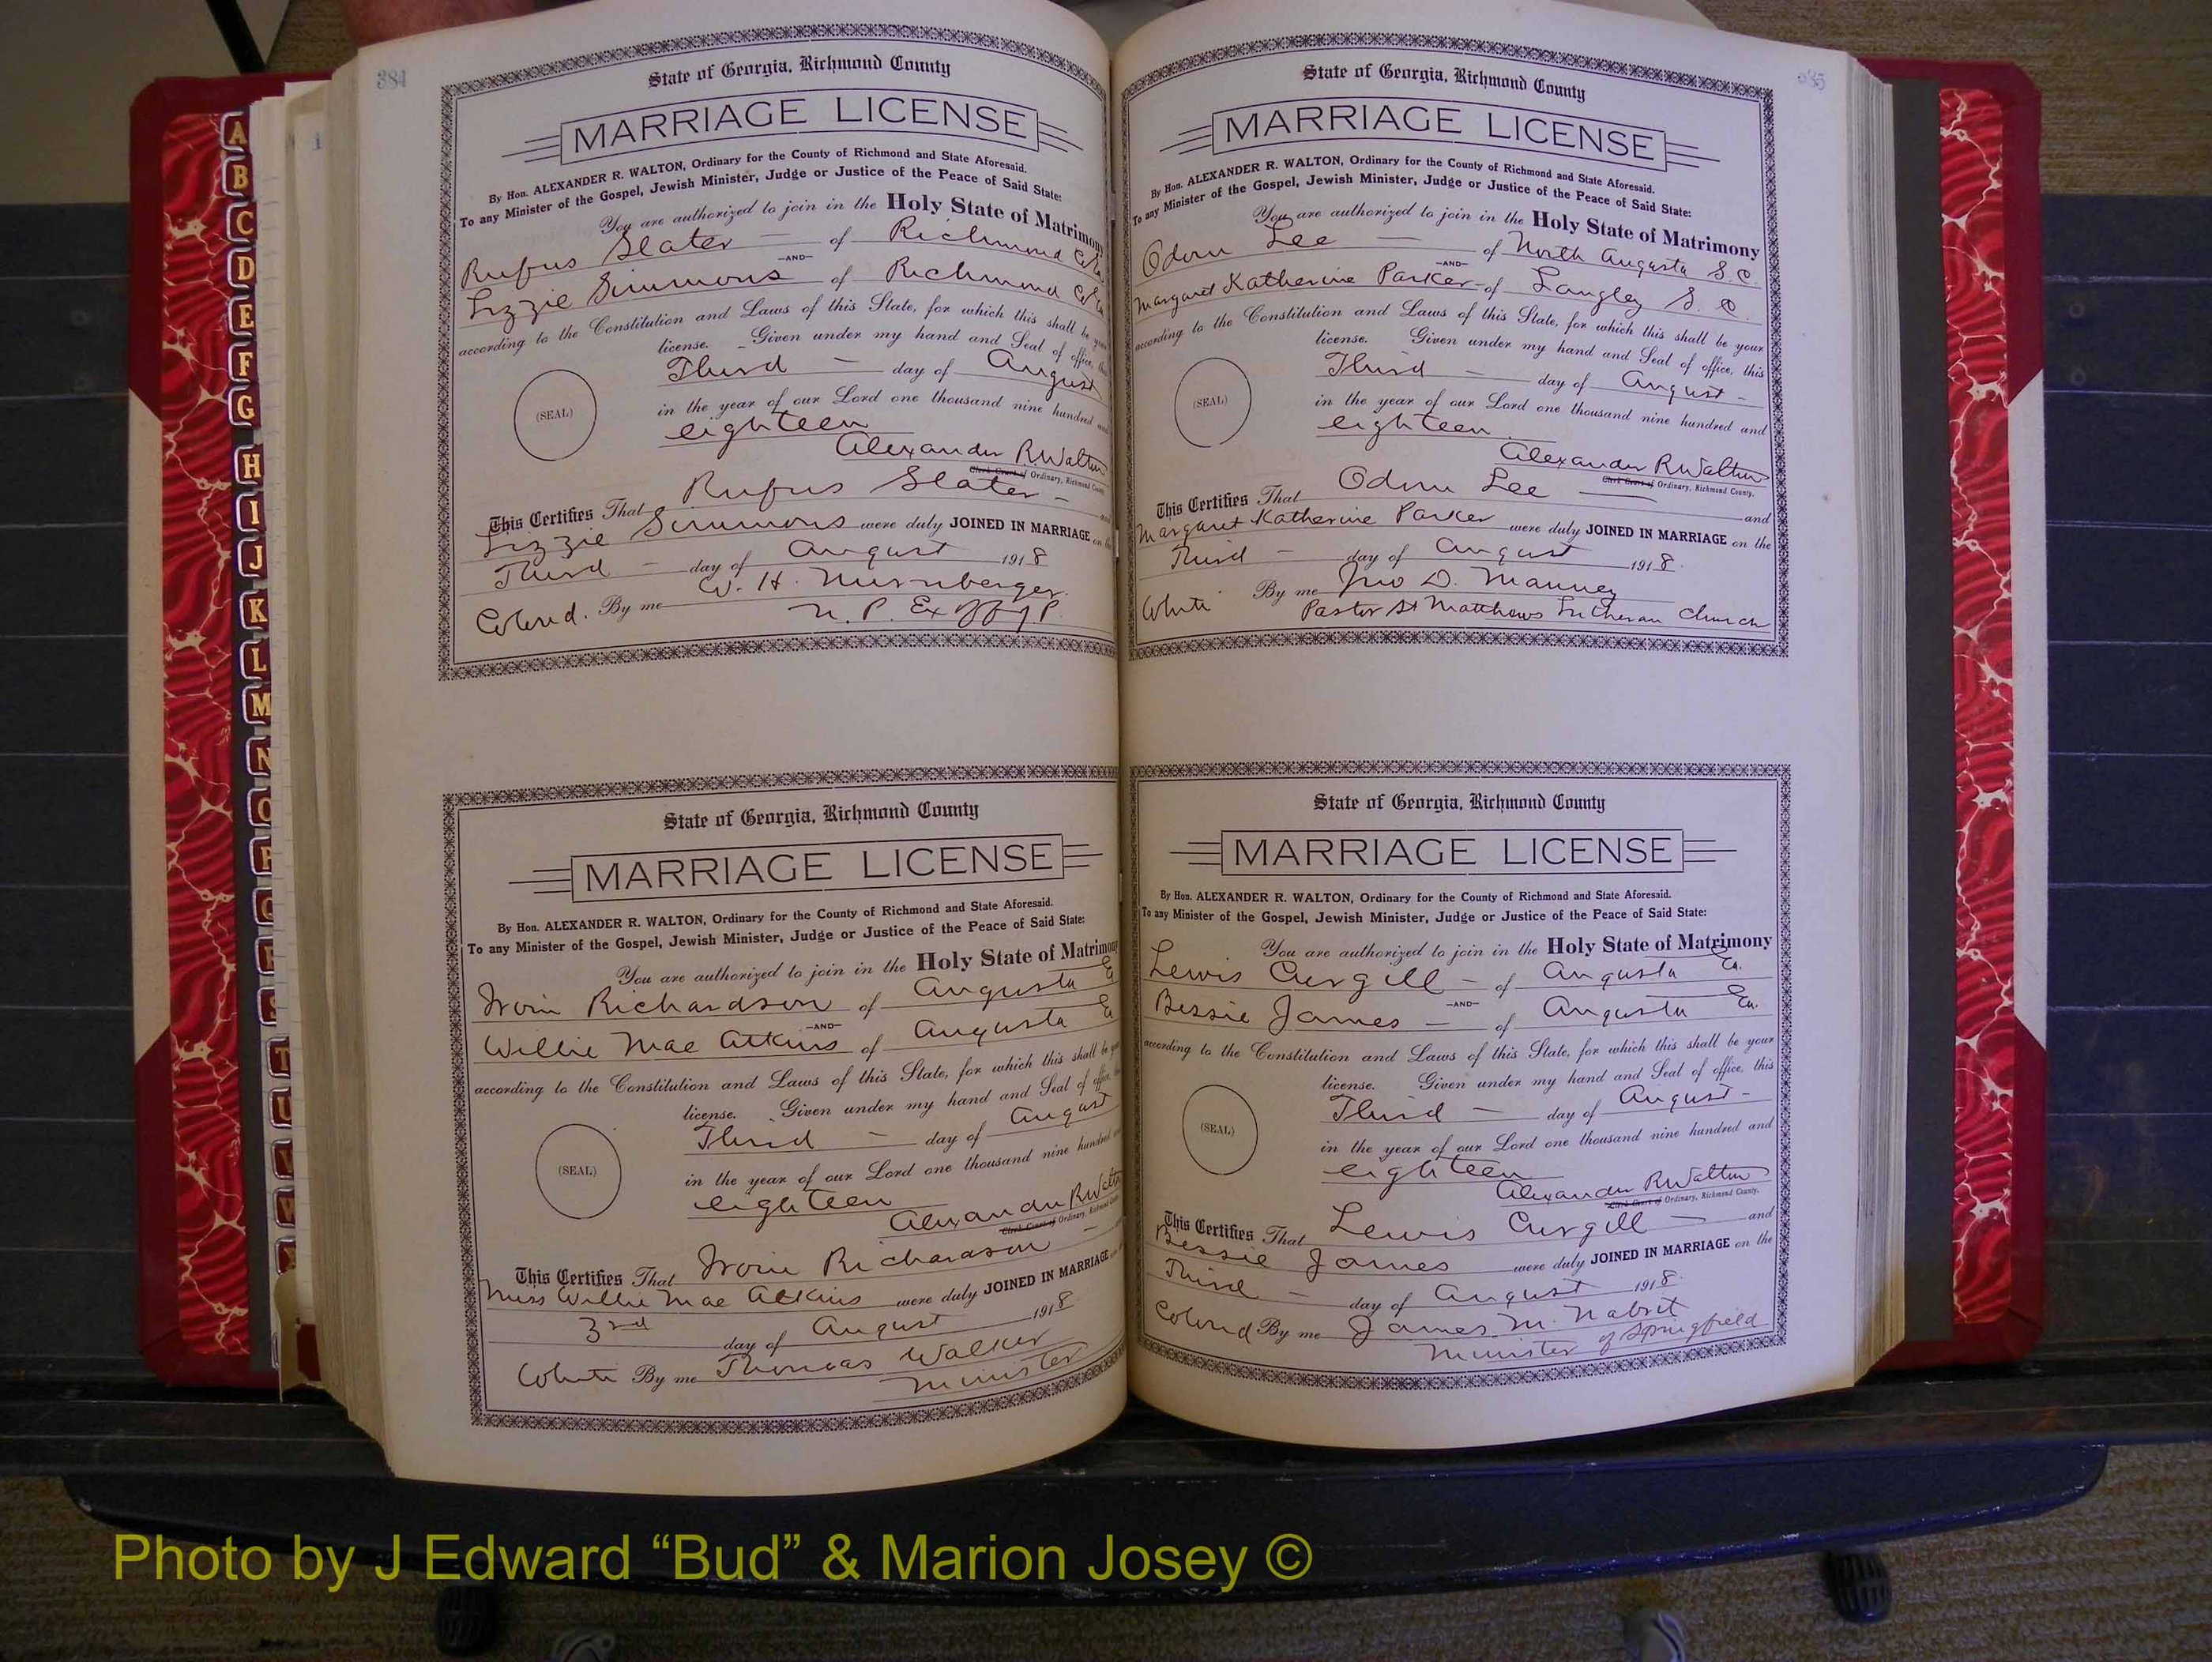 384
State of Georgia, Richmond County
MARRIAGE LICENSE
By Hon. ALEXANDER R. WALTON, Ordinary for the County of Richmond and State Aforesaid.
To any Minister of the Gospel, Jewish Minister, Judge or Justice of the Peace of Said State:
You are authorized to join in the Holy State of Matrimony
Rufus Slater — of Richmond Co
—AND—
Lizzie Simmons of Richmond Co
according to the Constitution and Laws of this State, for which this shall be your
license. Given under my hand and Seal of office,
Third — day of August
(SEAL)
in the year of our Lord one thousand nine hundred and
eighteen
Alexander R Walton
Clerk Court of Ordinary, Richmond County
This Certifies That Rufus Slater —
Lizzie Simmons were duly JOINED IN MARRIAGE on the
Third — day of August 1918
Colored. By me W. H. Nurnberger.
N. P. Ex Off J P.
State of Georgia, Richmond County
MARRIAGE LICENSE
By Hon. ALEXANDER R. WALTON, Ordinary for the County of Richmond and State Aforesaid.
To any Minister of the Gospel, Jewish Minister, Judge or Justice of the Peace of Said State:
You are authorized to join in the Holy State of Matrimony
Irvin Richardson of Augusta
—AND—
Willie Mae Atkins of Augusta
according to the Constitution and Laws of this State, for which this shall be your
license. Given under my hand and Seal of office,
Third — day of August
(SEAL)
in the year of our Lord one thousand nine hundred
eighteen
Alexander R Walton
Clerk Court of Ordinary, Richmond
This Certifies That Irvin Richardson —
Miss Willie Mae Atkins were duly JOINED IN MARRIAGE
3rd day of August 1918
White By me Thomas Walker
Minister
385
State of Georgia, Richmond County
MARRIAGE LICENSE
By Hon. ALEXANDER R. WALTON, Ordinary for the County of Richmond and State Aforesaid.
To any Minister of the Gospel, Jewish Minister, Judge or Justice of the Peace of Said State:
You are authorized to join in the Holy State of Matrimony
Odom Lee — of North Augusta S.C.
—AND—
Margaret Katherine Parker - of Langley S. C.
according to the Constitution and Laws of this State, for which this shall be your
license. Given under my hand and Seal of office, this
Third — day of August -
(SEAL)
in the year of our Lord one thousand nine hundred and
eighteen
Alexander R Walton
Clerk Court of Ordinary, Richmond County.
This Certifies That Odom Lee — and
Margaret Katherine Parker were duly JOINED IN MARRIAGE on the
Third — day of August 1918.
White By me Jno D. Mauney
Pastor St Matthews Lutheran Church
State of Georgia, Richmond County
MARRIAGE LICENSE
By Hon. ALEXANDER R. WALTON, Ordinary for the County of Richmond and State Aforesaid.
To any Minister of the Gospel, Jewish Minister, Judge or Justice of the Peace of Said State:
You are authorized to join in the Holy State of Matrimony
Lewis Curgill — of Augusta Ga.
—AND—
Bessie James — of Augusta Ga.
according to the Constitution and Laws of this State, for which this shall be your
license. Given under my hand and Seal of office, this
Third — day of August -
(SEAL)
in the year of our Lord one thousand nine hundred and
eighteen
Alexander R Walton
Clerk Court of Ordinary, Richmond County.
This Certifies That Lewis Curgill — and
Bessie James were duly JOINED IN MARRIAGE on the
Third — day of August 1918.
Colored By me James M. Nabrit
Minister of Springfield
A
B
C
D
E
F
G
H
I
J
K
L
M
N
O
P
Q
R
S
T
U
V
W
Photo by J Edward “Bud” & Marion Josey ©